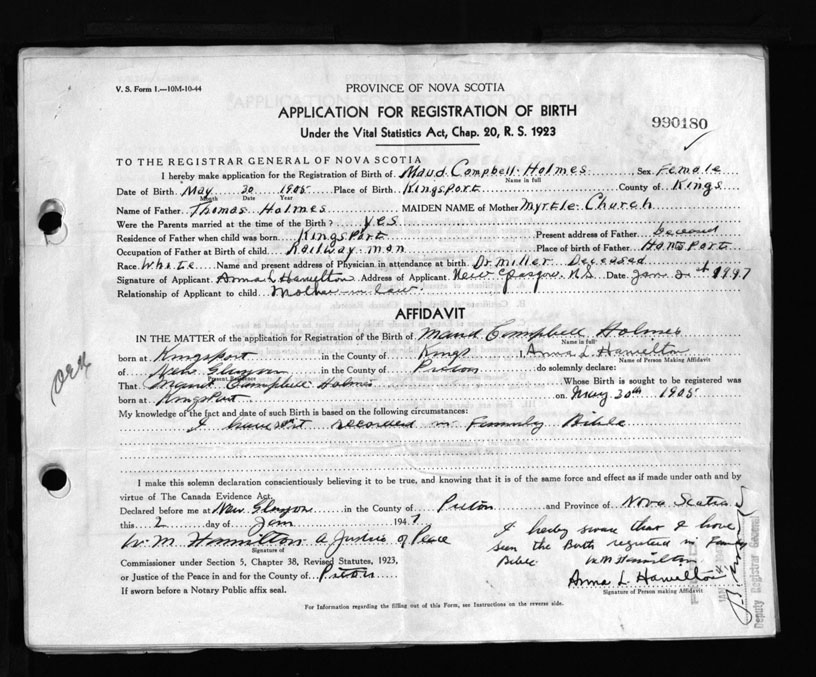 V. S. Form 1.—10M-10-44
PROVINCE OF NOVA SCOTIA
APPLICATION FOR REGISTRATION OF BIRTH
990180
Under the Vital Statistics Act, Chap. 20, R. S. 1923
TO THE REGISTRAR GENERAL OF NOVA SCOTIA
I hereby make application for the Registration of Birth of Maud Campbell Holmes Sex Female
Name in full
Date of Birth May 30 1905 Place of Birth Kingsport County of Kings
Month Date Year
Name of Father Thomas Holmes MAIDEN NAME of Mother Myrtle Church
Were the Parents married at the time of the Birth? yes
Residence of Father when child was born Kingsport Present address of Father
Occupation of Father at Birth of child Railway man Place of birth of Father Hantsport
Race White Name and present address of Physician in attendance at birth Dr Miller Deceased
Signature of Applicant Anna L Hamilton Address of Applicant New Glasgow N.S. Date Jan 1947
Relationship of Applicant to child Mother in law
AFFIDAVIT
IN THE MATTER of the application for Registration of the Birth of Maud Campbell Holmes
Name in full
born at Kingsport in the County of Kings I, Anna L. Hamilton
Name of Person Making Affidavit
of New Glasgow in the County of Pictou do solemnly declare:
Present Residence
That Maud Campbell Holmes Whose Birth is sought to be registered was
born at Kingsport on May 30th 1905
My knowledge of the fact and date of such Birth is based on the following circumstances:
I have it recorded in Family Bible
I make this solemn declaration conscientiously believing it to be true, and knowing that it is of the same force and effect as if made under oath and by
virtue of The Canada Evidence Act.
Declared before me at New Glasgow in the County of Pictou and Province of Nova Scotia
this 2 day of Jan 1947
I hereby swear that I have
Wm Hamilton a Justice of Peace
seen the Birth registered in Family
Signature of
Bible Wm Hamilton
Commissioner under Section 5, Chapter 38, Revised Statutes, 1923,
or Justice of the Peace in and for the County of Pictou
Anna L Hamilton
Signature of Person making Affidavit
If sworn before a Notary Public affix seal.
For Information regarding the filling out of this Form, see Instructions on the reverse side.
Deputy Registrar General